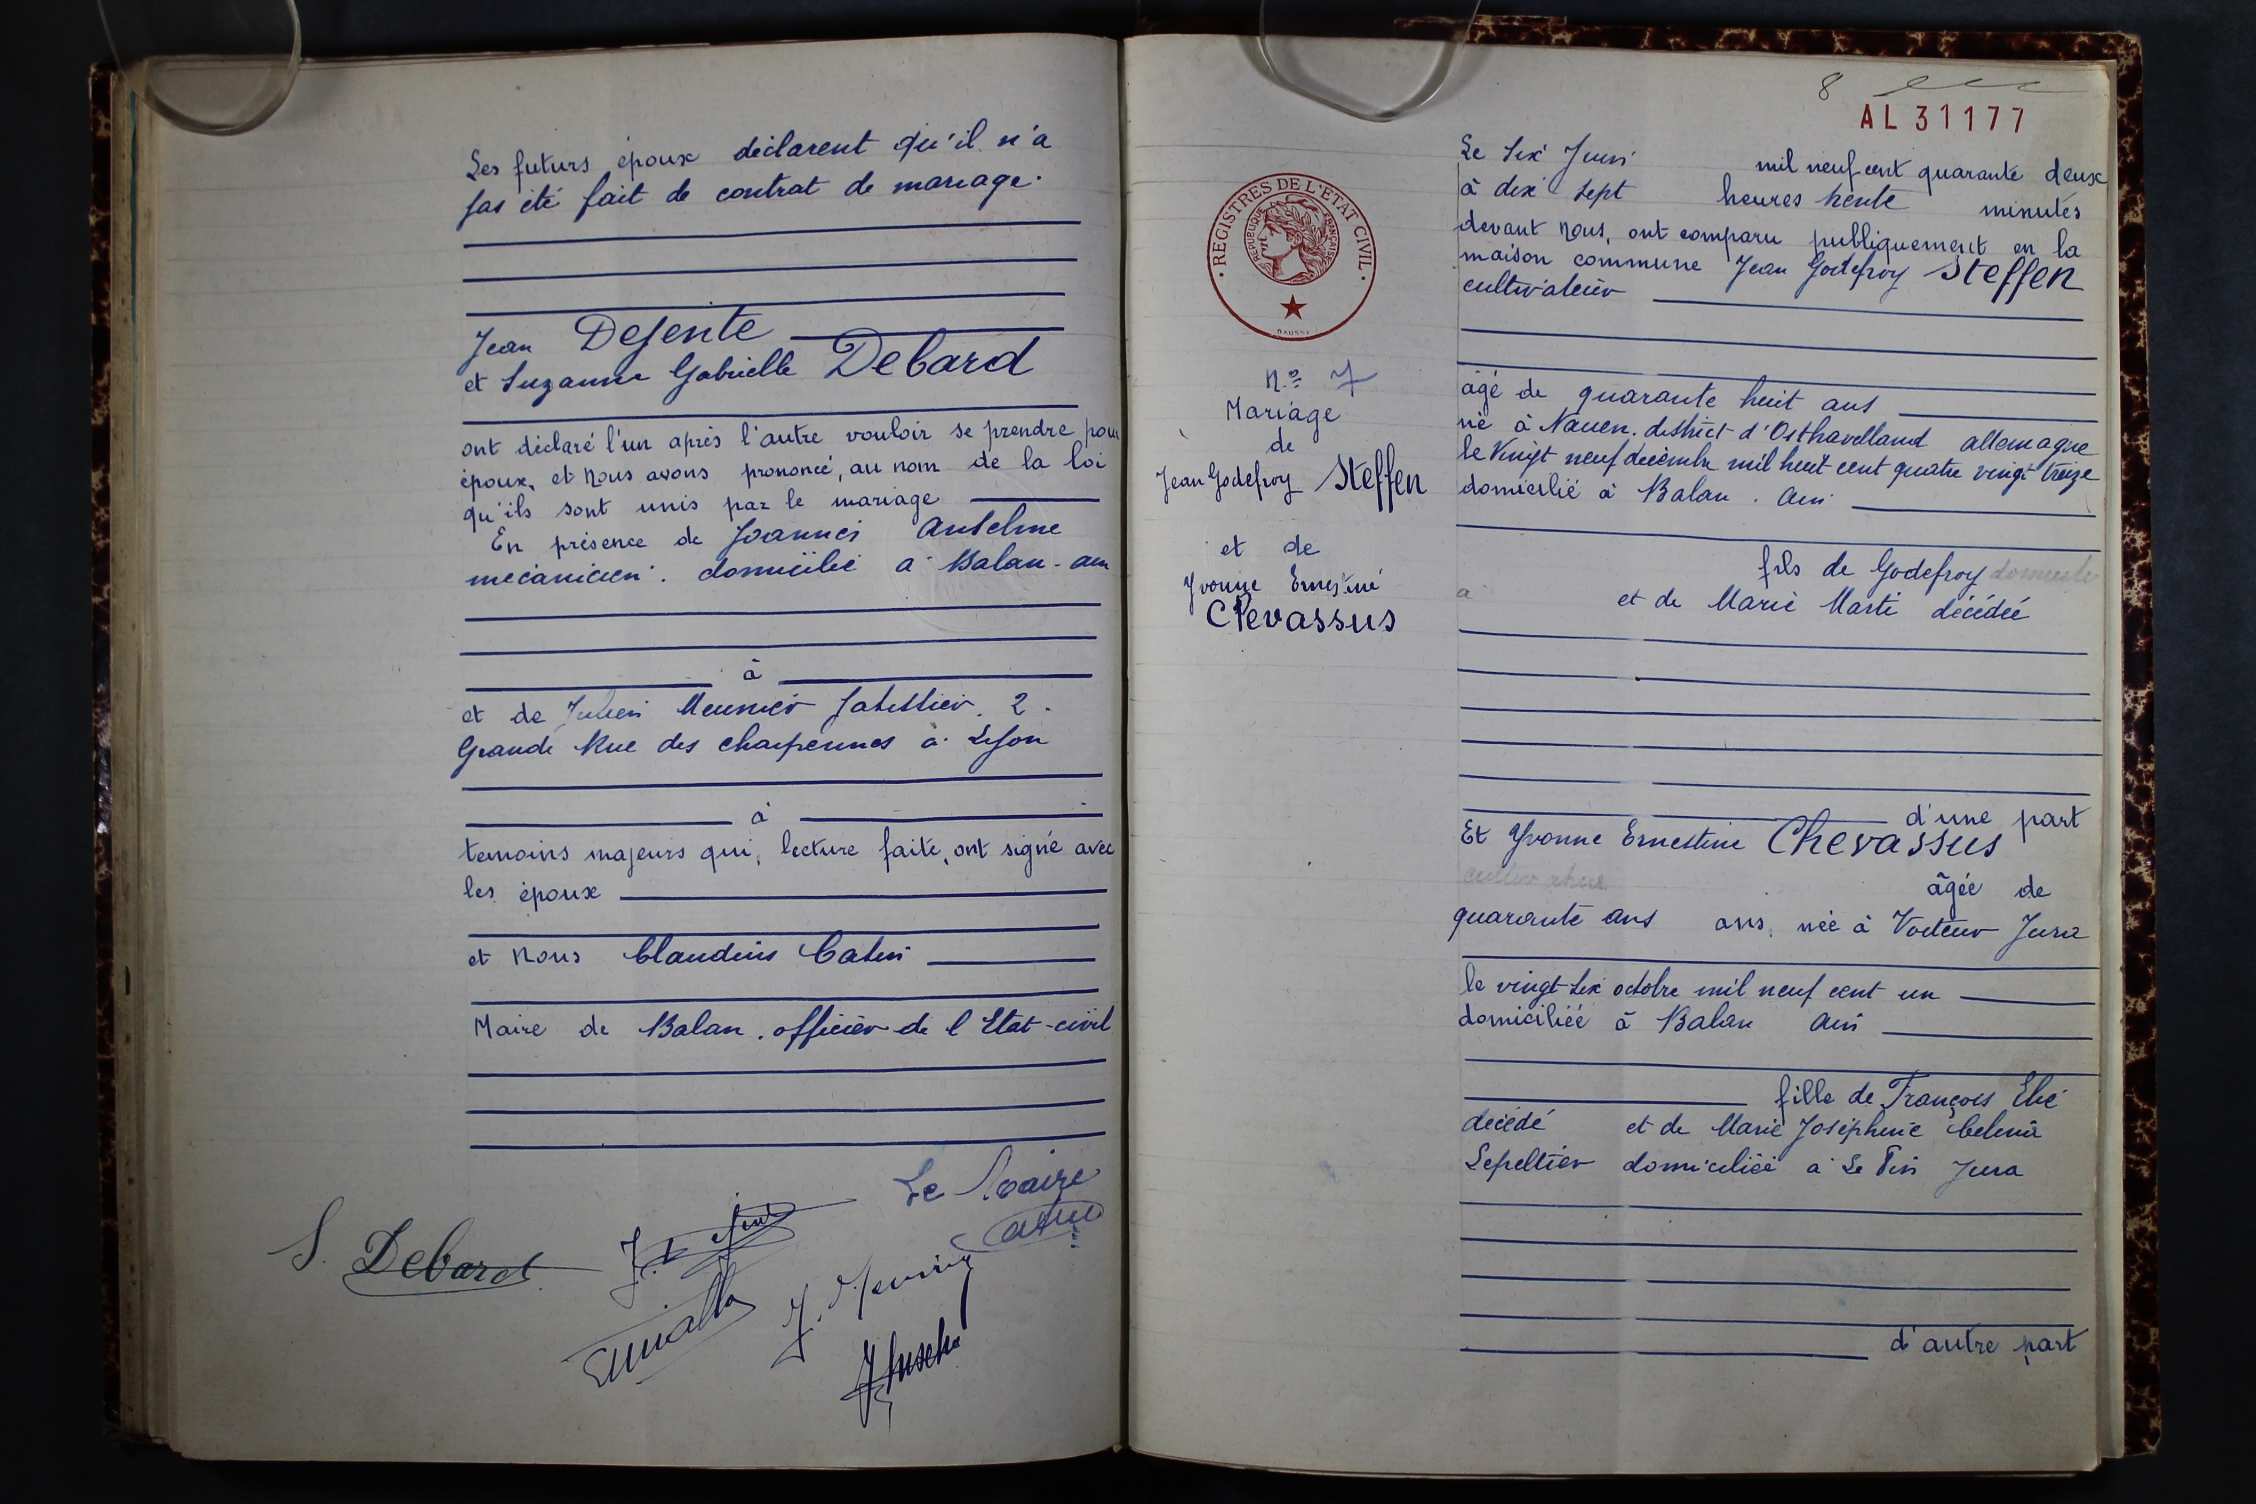 Les futurs époux déclarent qu'il n'a
pas été fait de contrat de mariage.
Jean Dejente
et Suzanne Gabrielle Debard
ont déclaré l'un après l'autre vouloir se prendre pour
époux, et Nous avons prononcé, au nom de la loi
qu'ils sont unis par le mariage
En présence de Joannès Anselme
mécanicien. domicilié à Balan - ain
à
et de Julien Meunier 2.
Grande Rue des Charpennes à Lyon
à
temoins majeurs qui, lecture faite, ont signé avec
les époux
et Nous Claudius Catin
Maire de Balan. officier de l'Etat-civil
Le Maire
Catin
S. Debard
8
AL 31177
REGISTRES DE L'ETAT CIVIL
REPUBLIQUE FRANÇAISE
N.º 7
Mariage
de
Jean Godefroy Steffen
et de
Yvonne Ernestine
Chevassus
Le six Juin mil neuf cent quarante deux
à dix sept heures trente minutes
devant Nous, ont comparu publiquement en la
maison commune Jean Godefroy Steffen
cultivateur
âgé de quarante huit ans
né à Nauen. district d'Osthavelland allemagne
le Vingt neuf décembre mil huit cent quatre vingt treize
domicilié à Balan. Ain
fils de Godefroy domicilié
à et de Marie Marti décédée
d'une part
Et Yvonne Ernestine Chevassus
âgée de
quarante ans ans, née à Voiteur Jura
le vingt six octobre mil neuf cent un
domiciliée à Balan Ain
fille de François Elie
décédé et de Marie Joséphine Celina
Lepeltier domiciliée à Le Pin Jura
d'autre part